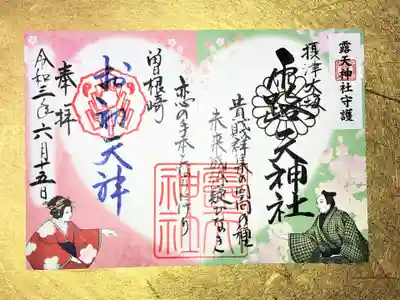 露天神社守護
摂津大坂
露天神社
貴賤群集の回向の種
未来成仏疑ひなき
恋の手本となりにけり
曽根崎
お初天神
奉拝
令和三年六月十五日